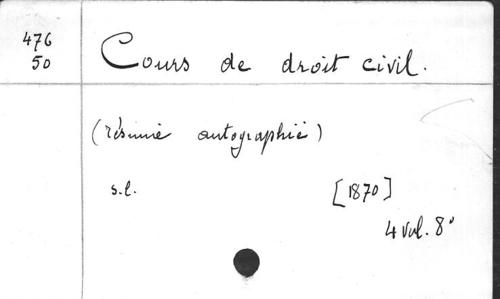 476
50
Cours de droit civil.
(résumé autographié)
s.l. [1870]
4 vol. 8°